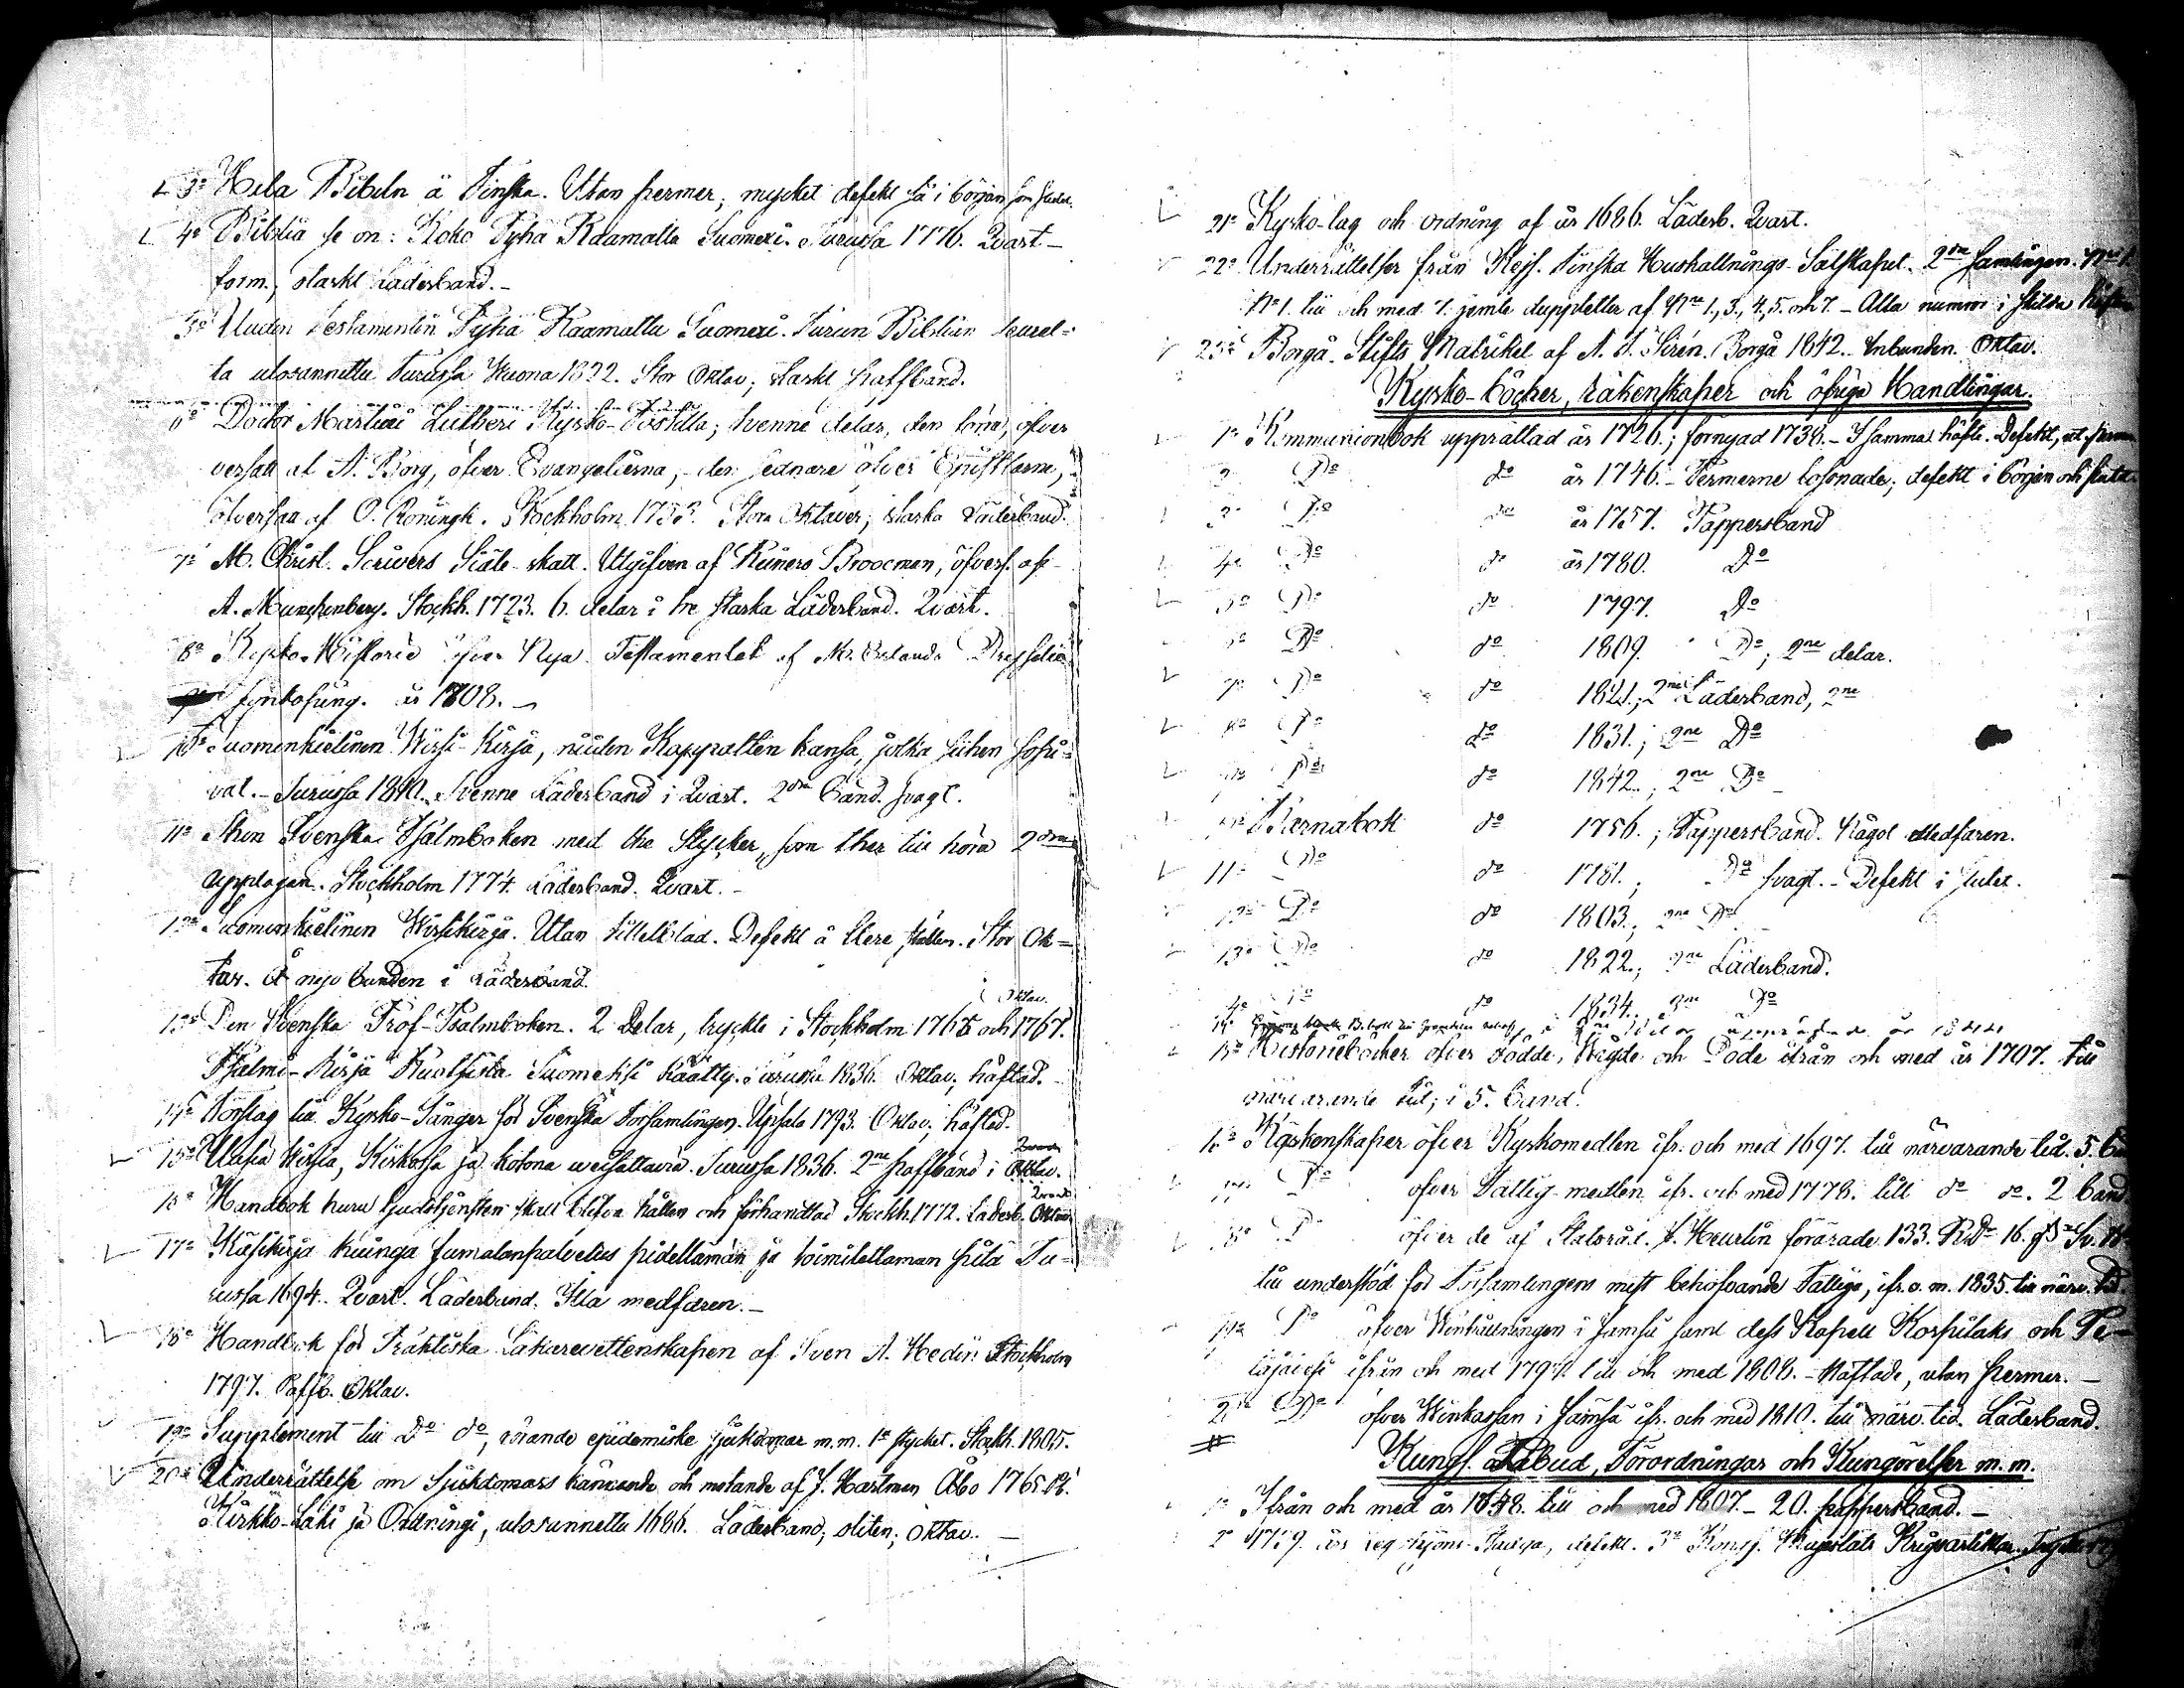 3º Hela Bibeln å Finska. Utan permer, mycket defekt så i början som slutet.
4º Biblia se on: Koko Pyhä Raamattu Suomexi. Turussa 1776. Qvart-
form, starkt Läderband.-
5º Uuden Testamentin Pyhä Raamattu Suomexi. Turun Biblian Seural=
ta ulosannettu Turussa Wuona 1822. Stor Oktav; starkt Paffband.
6º Doctor Martini Lutheri Kyrko-Postilla; tvenne delar, den förra, öfver
versatt af A. Borg, öfver Evangelierna, den sednare öfver Epistlarne,
öfversatt af O. Rönigk. Stockholm Stora Oktaver; starka Läderband.
7º M. Christ. Scrivers Siäle-skatt. Utgifven af Reiners Broocman, öfvers. af
A. Munchenberg. Stockh. 1723. 6 delar i tre starka Läderband. Qvart.
8º Kyrko-Historie öfver Nya Testamentet af
Jynköping. år 1808.
10º Suomenkielinen Wirsi-Kirja, niiden Kappaltten kansa, jotka siihen sopi=
vat.- Turussa 1840. Tvenne Läderband i Qvart. 2dra Band. svagt.
11º Then Svenska Psalmboken med the Stycker, som ther till höra 2dra
Upplagan. Stockholm 1774. Läderband. Qvart.-
12º Suomenkielinen Wirsikirja. Utan tittelblad. Defekt å flere ställen. Stor Ok=
tav. Å nyo bunden i Läderband.
Oktav.
13º Den Svenska Prof-Psalmboken. 2 Delar, tryckte i Stockholm 1765 och 1767.
Psalmi-Kirja Ruotsista Suomeksi käätty. Turussa 1836. Oktav, häftad.
14º Förslag till Kyrko-Sånger för Svenska Församlingen. Upsala 1793. Oktav; häftad.
15º Uusia Wirsiä, Kirkossa ja kotona weisattavia. Turussa 1836. 2ne Paffband i Oktav.
16º Handbok huru Gudstjensten skall blifva hållen och förhandlad Stockh. 1772. Läderb.
17º Käsikirja kuinga Jumalanpalvelus pidettämän ja toimitettaman pitä Tu-
russa 1694. Qvart. Läderband. Illa medfaren.-
18º Handbok för Praktiska Läkarevettenskapen af Sven A. Hedin Stockholm
1797. Paffb. Oktav.
19º Supplement till Dº dº, rörande epidemiske sjukdomar m.m. 1a stycket. Stockh. 1805.
20º Underrättelse om Sjukdomars kännande och motande af J. Hartman Åbo 1765.
Kirkko-Laki ja Ordningi, ulosannettu 1686. Läderband, sliten; Oktav.-
21º Kyrko-lag och ordning af år 1686. Läderb. Qvart.
22º Underrättelser från Kejs. Finska Hushållnings-Sälskapet. 2dra Samlingen.
Nº 1. till och med 7. jemte duppletter af Nro 1, 3, 4, 5 och 7. - Alla nummror i skilda häften
23º Borgå Stifts Matrikel af A. J. Sirén. Borgå 1842. Inbunden. Oktav.
Kyrko-böcker, räkenskaper och öfriga Handlingar.
1º Kommunionbok upprättad år 1726.; förnyad 1738.- I samma häfte. Defekt, ut. permar
2 Dº dº år 1746.- Permerne lossnade; defekt i början och slutet
3º Dº dº år 1757. Pappersband
4º Dº dº år 1780. Dº
5º Dº dº 1797. Dº
6º Dº dº 1809. Dº; 2ne delar.
7º Dº dº 1821.; 2ne Läderband, 2ne
8º Dº dº 1831.; 2ne Dº
9º Dº dº 1842.; 2ne Dº
10º Barnabok dº 1756.; Pappersband. Något medfaren.
11º Dº dº 1781.; Dº svagt.- Defekt i slutet.
12º Dº dº 1803.; 2ne Dº
13º Dº dº 1822.; 2ne Läderband.
14º Dº dº 1834. 2ne Dº
15º Historiæböcker öfver Födde, Wigde och Döde ifrån och med år 1707. till
närvarande tid; i 5. band.
16º Räkenskaper öfver Kyrkomedlen ifr. och med 1697. till närvarande tid. 5.
17º Dº öfver Fattig-medlen ifr. och med 1778. till dº dº. 2 band
18º Dº öfver de af Statsråd. J. Heurlin förärade 133. RDr 16.
till understöd för Församlingens mest behöfvande Fattige, ifr. o. m. 1835. till närv. tid.
19º Dº öfver Winhållningen i Jämsä samt dess Kapell Korpilaks och Pe-
täjävesi ifrån och med 1797. till och med 1808.- Häftade, utan permer.-
20º Dº öfver Winkassan i Jämsä ifr. och med 1810. till närv. tid. Läderband.
#
Kungl. Påbud, Förordningar och Kungörelser m. m.
1º Ifrån och med år 1648. till och med 1807.- 20. pappersband.-